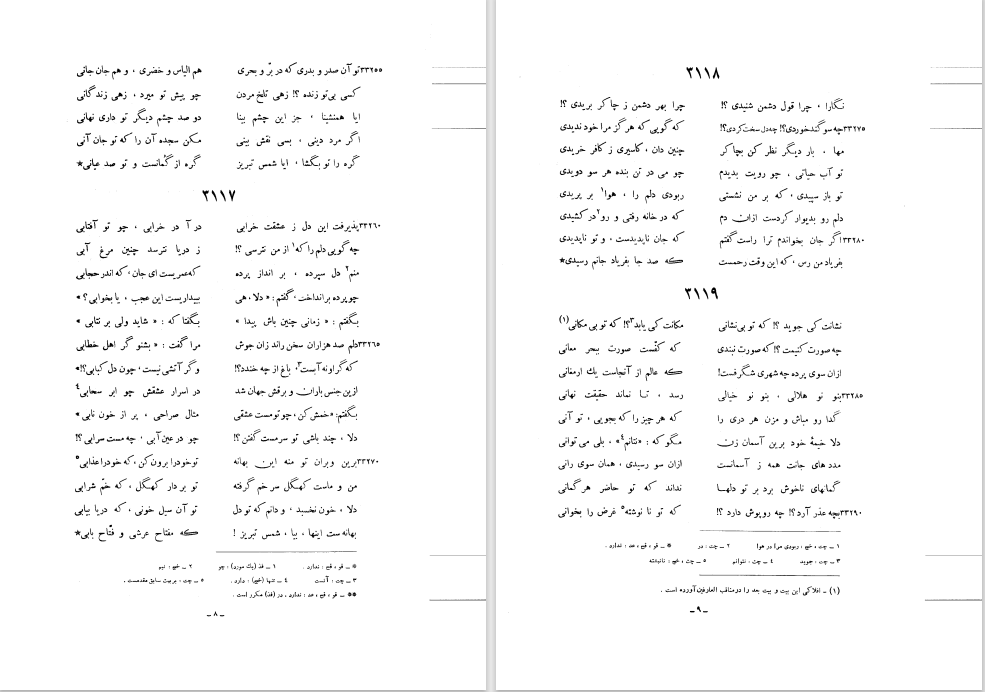 ۳۳۲۵۵ تو آن صدر و بدری که در برّ و بحری هم الیاس و خضری ، و هم جان جانی
کسی بی‌تو زنده ؟! زهی تلخ مردن چو پیش تو میرد ، زهی زندگانی
ایا همنشینا ، جز این چشم بینا دو صد چشم دیگر تو داری نهانی
اگر مرد دینی ، بسی نقش بینی مکن سجده آن را که تو جان آنی
گره را تو بگشا ، ایا شمس تبریز گره از گمانست و تو صد عیانی*
۳۱۱۷
۳۳۲۶۰ پذیرفت این دل ز عشقت خرابی در آ در خرابی ، چو تو آفتابی
چه گویی دلم را که۱ از من نترسی ؟! ز دریا نترسد چنین مرغ آبی
منم۲ دل سپرده ، بر انداز پرده که عمریست ای جان ، که اندر حجابی
چو پرده بر انداخت ، گفتم : « دلا ، هی ببیداریست این عجب ، یا بخوابی ؟ »
بگفتم : « زمانی چنین باش پیدا » بگفتا که : « شاید ولی بر نتابی »
۳۳۲۶۵ دلم صد هزاران سخن راند زان جوش مرا گفت : « بشنو گر اهل خطابی
که گر او نه آبست۳، باغ از چه خندد؟! وگر آتشی نیست ، چون دل کبابی؟!»
ازین جنس باران و برقش جهان شد در اسرار عشقش چو ابر سحابی۴
بگفتم: «خمش کن ، چو تو مست عشقی مثال صراحی ، پر از خون نابی »
دلا ، چند باشی تو سرمست گفتن؟! چو در عین آبی ، چه مست سرابی ؟!
۳۳۲۷۰ برین و بران تو منه این بهانه تو خود را برون کن ، که خود را عذابی۵
من و ماست کهگل سر خم گرفته تو بر دار کهگل ، که خمّ شرابی
دلا ، خون نخسبد ، و دانم که تو دل تو آن سیل خونی ، که دریا بیابی
بهانه ست اینها ، بیا ، شمس تبریز ! که مفتاح عرشی و فتّاح بابی*
* ـ قو ، قح : ندارد . ۱ ـ فذ (بك مورد) : چو ۲ ـ خج : نیم
۳ ـ چت : آتست ۴ ـ تنها (خج) : دارد . ۵ ـ چت ، بربیت سابق مقدمست .
** ـ قو ، قح ، عد : ندارد . در (فذ) مکرر است .
ـ ۸ ـ
۳۱۱۸
نگارا ، چرا قول دشمن شنیدی ؟! چرا بهر دشمن ز چاکر بریدی ؟!
۳۳۲۷۵ چه سوگند خوردی؟! چه دل سخت کردی؟! که گویی که هرگز مرا خود ندیدی
مها ، بار دیگر نظر کن بچاکر چنین دان ، کاسیری ز کافر خریدی
تو آب حیاتی ، چو رویت بدیدم چو می در تن بنده هر سو دویدی
تو باز سپیدی ، که بر من نشستی ربودی دلم را ، هوا۱ بر پریدی
دلم رو بدیوار کردست ازان دم که در خانه رفتی و رو۲ در کشیدی
۳۳۲۸۰ اگر جان بخواندم ترا راست گفتم که جان ناپدیدست ، و تو ناپدیدی
بفریاد من رس ، که این وقت رحمست که صد جا بفریاد جانم رسیدی*
۳۱۱۹
نشانت کی جوید ؟! که تو بی‌نشانی مکانت کی یابد۳؟! که تو بی مکانی (۱)
چه صورت کنیمت ؟! که صورت نبندی که کفّست صورت ببحر معانی
ازان سوی پرده چه شهری شگرفست! که عالم از آنجاست یك ارمغانی
۳۳۲۸۵ بنو نو هلالی ، بنو نو خیالی رسد ، تا نماند حقیقت نهانی
گدا رو مباش و مزن هر دری را که هر چیز را که بجویی ، تو آنی
دلا خیمهٔ خود برین آسمان زن مگو که : «نتانم۴» ، بلی می توانی
مددهای جانت همه ز آسمانست ازان سو رسیدی ، همان سوی رانی
گمانهای ناخوش برد بر تو دلها نداند که تو حاضر هر گمانی
۳۳۲۹۰ بچه عذر آرد؟! چه روپوش دارد ؟! که تو نا نوشته۵ غرض را بخوانی
۱ ـ چت ، خج : ربودی مرا در هوا ۲ ـ چت : در * ـ قو ، قح ، عد : ندارد .
۳ ـ چت : جوید ۴ ـ چت : نتوانم ۵ ـ چت ، خج : نانبشته
(۱) ـ افلاکی این بیت و بیت بعد را در مناقب العارفین آورده است .
ـ ۹ ـ